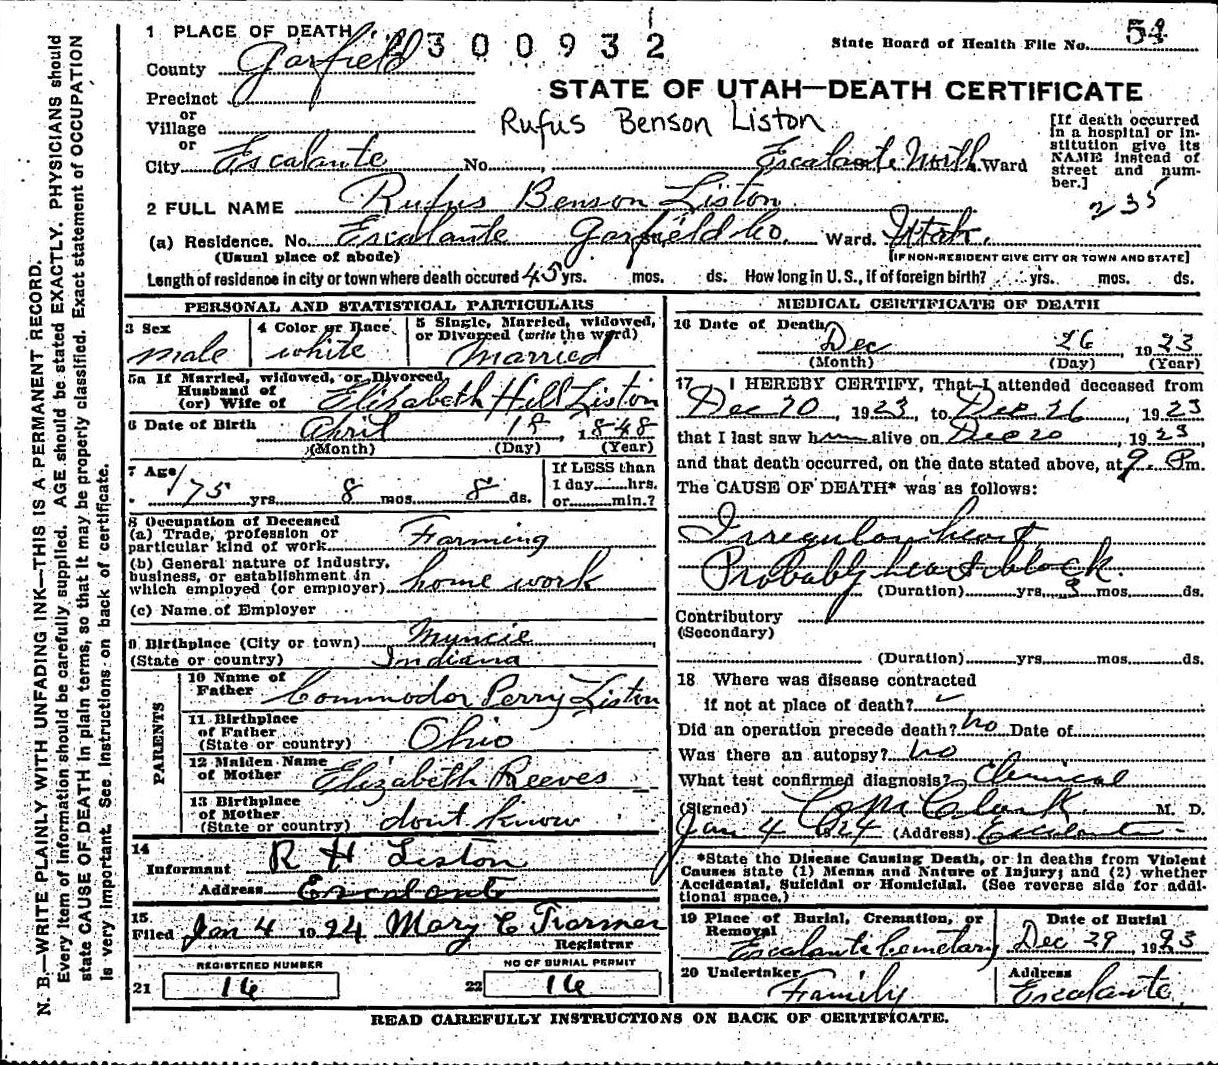 1 PLACE OF DEATH 2300932
State Board of Health File No. 54
County Garfield
STATE OF UTAH—DEATH CERTIFICATE
Precinct
or
Village
Rufus Benson Liston
[If death occurred in a hospital or institution give its NAME instead of street and number.]
or
City Escalante No. , Escalante North Ward
235
2 FULL NAME Rufus Benson Liston
(a) Residence. No. Escalante Garfield Co. Ward. Utah.
(Usual place of abode) [IF NON-RESIDENT GIVE CITY OR TOWN AND STATE]
Length of residence in city or town where death occured 45 yrs. mos. ds. How long in U.S., if of foreign birth? yrs. mos. ds.
PERSONAL AND STATISTICAL PARTICULARS
3 Sex male
4 Color or Race white
5 Single, Married, widowed, or Divorced (write the word) Married
5a If Married, widowed, or Divorced
Husband of
(or) Wife of Elizabeth Hill Liston
6 Date of Birth April 18, 1848
(Month) (Day) (Year)
7 Age 75 yrs. 8 mos. 8 ds.
If LESS than
1 day hrs.
or min.?
8 Occupation of Deceased
(a) Trade, profession or
particular kind of work Farming
(b) General nature of industry,
business, or establishment in
which employed (or employer) home work
(c) Name of Employer
9 Birthplace (City or town) Myncie
(State or country) Indiana
PARENTS
10 Name of
Father Commodor Perry Liston
11 Birthplace
of Father
(State or country) Ohio
12 Maiden Name
of Mother Elizabeth Reeves
13 Birthplace
of Mother
(State or country) dont know
14
Informant R H Liston
Address Escalante
15
Filed Jan 4 1924 Mary C
Registrar
REGISTERED NUMBER
21 16
NO OF BURIAL PERMIT
22 16
MEDICAL CERTIFICATE OF DEATH
16 Date of Death
Dec 26 1923
(Month) (Day) (Year)
17 I HEREBY CERTIFY, That I attended deceased from
Dec 20, 1923, to Dec 26, 1923
that I last saw h alive on Dec 20, 1923
and that death occurred, on the date stated above, at 9 P m.
The CAUSE OF DEATH* was as follows:
Irregular heart
Probably heart block.
(Duration) yrs. 3 mos. ds.
Contributory
(Secondary)
(Duration) yrs. mos. ds.
18 Where was disease contracted
if not at place of death?
Did an operation precede death? no Date of
Was there an autopsy? no
What test confirmed diagnosis? Clenical
(Signed) M. D.
Jan 4 1924 (Address) Escalante
*State the Disease Causing Death, or in deaths from Violent
Causes state (1) Menns and Nature of Injury; and (2) whether
Accidental, Suicidal or Homicidal. (See reverse side for addi-
tional space.)
19 Place of Burial, Cremation, or
Removal
Escalante Cemetary
Date of Burial
Dec 29, 1923
20 Undertaker
Family
Address
Escalante.
READ CAREFULLY INSTRUCTIONS ON BACK OF CERTIFICATE.
N. B.—WRITE PLAINLY WITH UNFADING INK—THIS IS A PERMANENT RECORD.
Every item of information should be carefully supplied. AGE should be stated EXACTLY. PHYSICIANS should
state CAUSE OF DEATH in plain terms, so that it may be properly classified. Exact statement of OCCUPATION
is very important. See instructions on back of certificate.